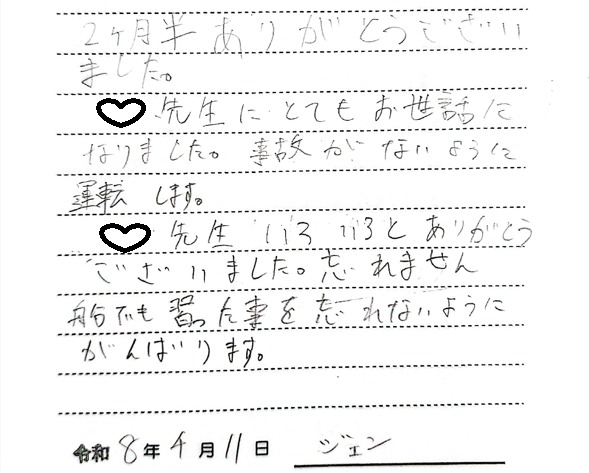 2ヶ月半ありがとうござい
ました。
先生にとてもお世話に
なりました。事故がないように
運転します。
先生いろいろとありがとう
ございました。忘れません
船でも習った事を忘れないように
がんばります。
令和8年4月11日 ジェン